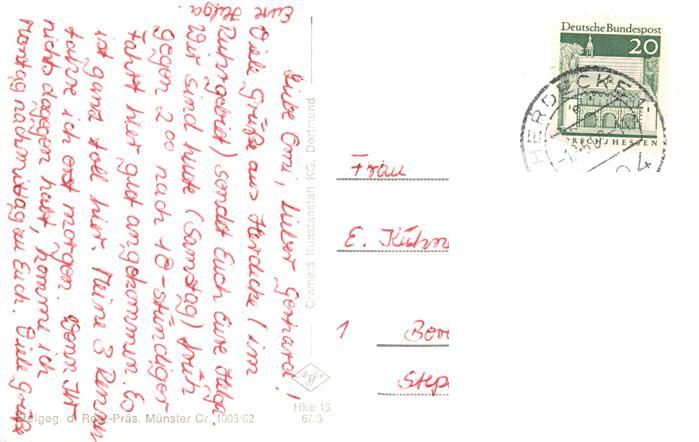 Liebe Omi, lieber Gerhard!
Viele Grüße aus Herdecke (im
Ruhrgebiet) sendet Euch Eure Helga.
Wir sind heute (Samstag) früh
gegen 2⁰⁰ nach 10-stündiger
Fahrt hier gut angekommen. Es
ist ganz toll hier. Meine 3
fahre ich erst morgen. Wenn Ihr
nichts dagegen habt, komme ich
Montag nachmittag zu Euch. Viele Grüße
Eure Helga.
Cramers Kunstanstalt KG. Dortmund
Hke 13
67/3
Freigeg. d. Reg.-Präs. Münster Cr. 1005/62
Deutsche Bundespost
20
LORSCH/HESSEN
HERDECKE
Frau
E. Kühn
1 Ber
Step